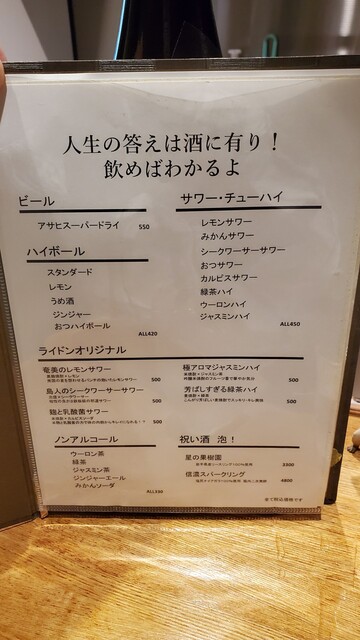 人生の答えは酒に有り！
飲めばわかるよ
ビール
アサヒスーパードライ 550
ハイボール
スタンダード
レモン
うめ酒
ジンジャー
おつハイボール
ALL420
サワー・チューハイ
レモンサワー
みかんサワー
シークワーサーサワー
おつサワー
カルピスサワー
緑茶ハイ
ウーロンハイ
ジャスミンハイ
ALL450
ライドンオリジナル
奄美のレモンサワー
500
島人のシークワーサーサワー
500
麹と乳酸菌サワー
500
極アロマジャスミンハイ
500
芳ばしすぎる緑茶ハイ
500
ノンアルコール
ウーロン茶
緑茶
ジャスミン茶
ジンジャーエール
みかんソーダ
祝い酒 泡！
星の果樹園
3300
信濃スパークリング
4800
全て税込価格です